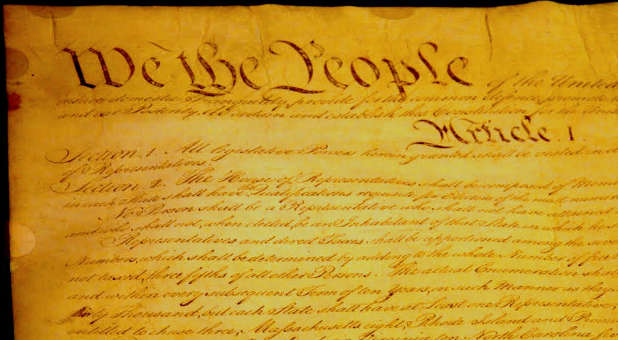 We the People of the United
insure domestic Tranquility, provide for the common defence, promote
and our Posterity, do ordain and establish this Constitution for the
Article. I.
Section. 1. All legislative Powers herein granted shall be vested in a
of Representatives.
Section. 2. The House of Representatives shall be composed of Mem
in each State shall have the Qualifications requisite for Electors of the most
No Person shall be a Representative who shall not have attained
and who shall not, when elected, be an Inhabitant of that State in which he s
Representatives and direct Taxes shall be apportioned among the seve
Numbers, which shall be determined by adding to the whole Number of free
not taxed, three fifths of all other Persons. The actual Enumeration shal
and within every subsequent Term of ten Years, in such Manner as they
thirty Thousand, but each State shall have at Least one Representative;
entitled to chuse three, Massachusetts eight, Rhode Island and
North Carolina